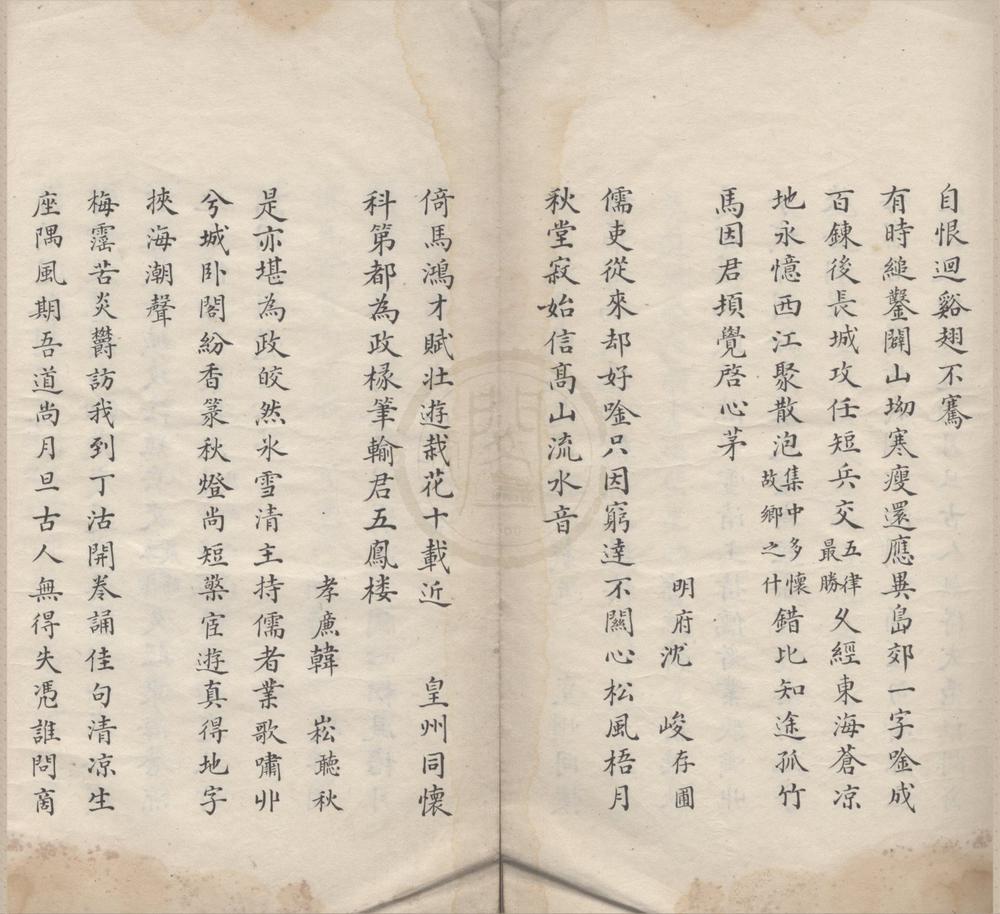 自恨迴谿翅不騫
有時縋鑿闢山坳寒瘦還應異島郊一字唫成
百鍊後長城攻任短兵交五律最勝久經東海蒼凉
地永憶西江聚散泡集中多懷故鄉之什錯比知途孤竹
馬因君頓覺啓心茅
明府沈　峻存圃
儒吏從來却好唫只因窮達不關心松風梧月
秋堂寂始信髙山流水音
皇州同懷
倚馬鴻才賦壯遊栽花十載近
科第都為政椽筆輸君五鳳楼
孝廉韓　崧聽秋
是亦堪為政皎然氷雪清主持儒者業歌嘯丱
兮城卧閣紛香篆秋燈尚短檠宦遊真得地字
挾海潮聲
梅霪苦炎欝訪我到丁沽開巻誦佳句清凉生
座隅風期吾道尚月旦古人無得失凭誰問商